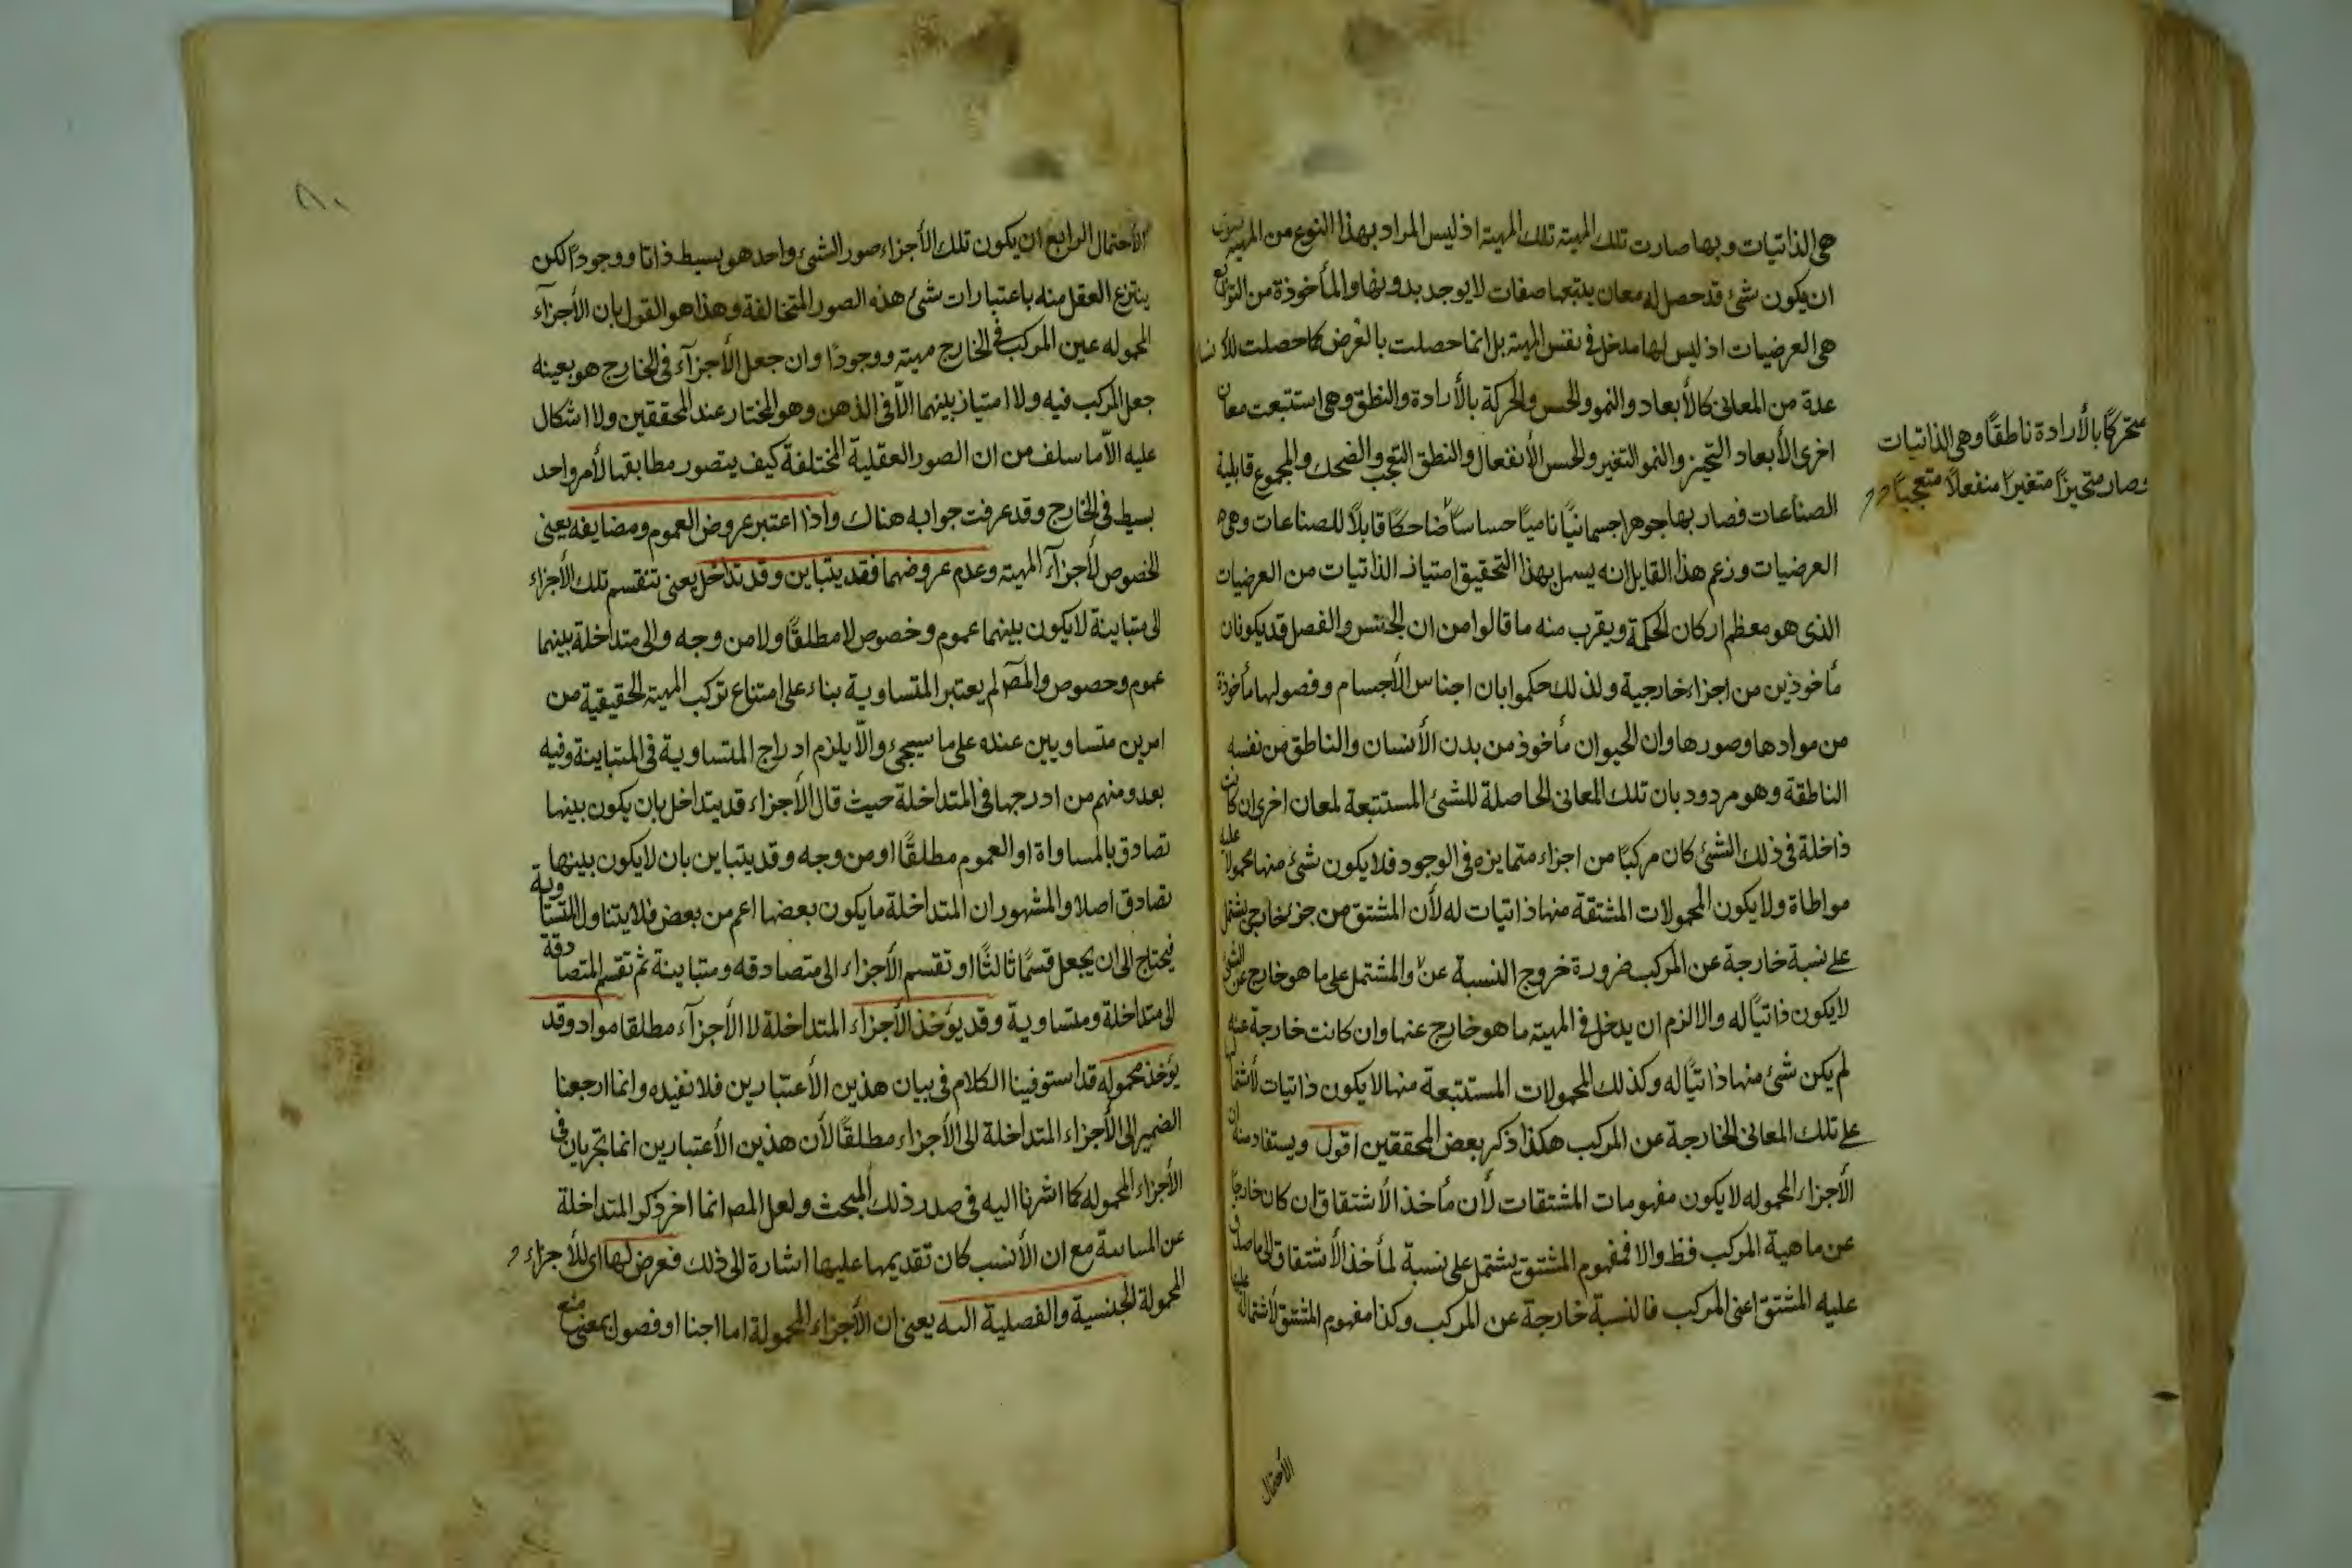 هى الذاتيات وبها صارت تلك المهية تلك المهية اذ ليس المراد بهذا النوع من المهية سوى
ان يكون شئ قد حصل له معان يتبعها صفات لا يوجد بدونها والمأخوذة من التوابع
هى العرضيات اذ ليس لها مدخل فى نفس المهية بل انما حصلت بالعرض كما حصلت للانسان
عدة من المعانى كالأبعاد والنمو والحس والحركة بالأرادة والنطق وهى استتبعت معان
اخرى الأبعاد التحيز والنمو التغير والحس الأنفعال والنطق التعجب والضحك والمجموع قابلية
الصناعات فصار بها جوهرا جسمانيًا ناميًا حساسًا ضاحكًا قابلاً للصناعات وهى
متحركًا بالأرادة ناطقًا وهى الذاتيات
وصار متحيزًا متغيرًا منفعلاً متعجبًا
العرضيات وزعم هذا القايل انه يسهل بهذا التحقيق امتياز الذاتيات من العرضيات
الذى هو معظم اركان الحكمة ويقرب منه ما قالوا من ان الجنس والفصل قد يكونان
مأخوذين من اجزاء خارجية ولذلك حكموا بان اجناس الأجسام وفصولها مأخوذة
من موادها وصورها وان الحيوان مأخوذ من بدن الأنسان والناطق من نفسه
الناطقة وهو مردود بان تلك المعانى الحاصلة للشئ المستتبعة لمعان اخرى ان كانت
داخلة فى ذلك الشئ كان مركبًا من اجزاء متمايزه فى الوجود فلا يكون شئ منها محمولاً عليه
مواطاة ولا يكون المحمولات المشتقة منها ذاتيات له لأن المشتق من جزء خارجى يشتمل
على نسبة خارجة عن المركب ضرورة خروج النسبة عن والمشتمل على ما هو خارج عن الشئ
لا يكون ذاتيًا له والا لزم ان يدخل فى المهية ما هو خارج عنها وان كانت خارجة عنه
لم يكن شئ منها ذاتيًا له وكذلك المحمولات المستتبعة منها لا يكون ذاتيات لأشتمالها
على تلك المعانى الخارجة عن المركب هكذا ذكر بعض المحققين اقول ويستفاد منه ان
الأجزاء المحموله لا يكون مفهومات المشتقات لأن مأخذ الأشتقاق ان كان خارجًا
عن ماهية المركب فظ والا فمفهوم المشتق يشتمل على نسبة لمأخذ الأشتقاق الى ما صدق
عليه المشتق اعنى المركب فالنسبة خارجة عن المركب وكذا مفهوم المشتق لأشتماله عليها
الأحتمال
٨٠
الأحتمال الرابع ان يكون تلك الأجزاء صور الشئ واحد هو بسيط ذاتا ووجودًا لكن
ينتزع العقل منه باعتبارات شئ هذه الصور المتخالفة وهذا هو القول بان الأجزاء
المحموله عين المركب فى الخارج مهية ووجودًا وان جعل الأجزآء فى الخارج هو بعينه
جعل المركب فيه ولا امتياز بينهما الّا فى الذهن وهو المختار عند المحققين ولا اشكال
عليه الّا ما سلف من ان الصور العقلية المختلفة كيف يتصور مطابقها لأمر واحد
بسيط فى الخارج وقد عرفت جوابه هناك واذا اعتبر عروض العموم ومضايفه يعنى
الخصوص لأجزآء المهية وعدم عروضهما فقد يتباين وقد تداخل يعنى تنقسم تلك الأجزاء
الى متباينة لا يكون بينهما عموم وخصوص لا مطلقًا ولا من وجه والى متداخلة بينهما
عموم وحصوص والمص لم يعتبر المتساوية بناء على امتناع تركب المهية الحقيقية من
امرين متساويين عنده على ما سيجئ والّا يلزم ادراج المتساوية فى المتباينة وفيه
بعد ومنهم من ادرجها فى المتداخلة حيث قال الأجزاء قد يتداخل بان يكون بينها
تصادق بالمساواة او العموم مطلقًا او من وجه وقد يتباين بان لا يكون بينها
تصادق اصلا والمشهور ان المتداخلة ما يكون بعضها اعم من بعض فلا يتناول المتساوية
فيحتاج الى ان يجعل قسمًا ثالثًا او تقسم الأجزاء الى متصادقه ومتباينة ثم تقسم المتصادقة
الى متداخلة ومتساوية وقد يؤخذ الأجزاء المتداخلة لا الأجزآء مطلقا مواد وقد
يؤخذ محموله قد استوفينا الكلام فى بيان هذين الأعتبارين فلا نفيده وانما ارجعنا
الضمير الى الأجزاء المتداخلة لا الى الأجزاء مطلقًا لأن هذين الأعتبارين انما تجريان فى
الأجزاء المحموله كما اشرنا اليه فى صدر ذلك المبحث ولعل المص انما اخر ذكر المتداخلة
عن المباينة مع ان الأنسب كان تقديمها عليها اشارة الى ذلك فعرض لها اى للأجزاء
المحمولة الجنسية والفصلية اليه يعنى ان الأجزاء المحمولة اما اجنا او فصول بمعنى منع